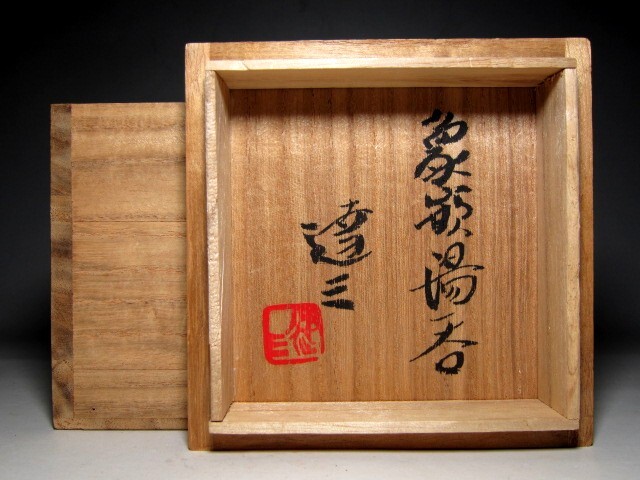 象嵌湯呑
達三